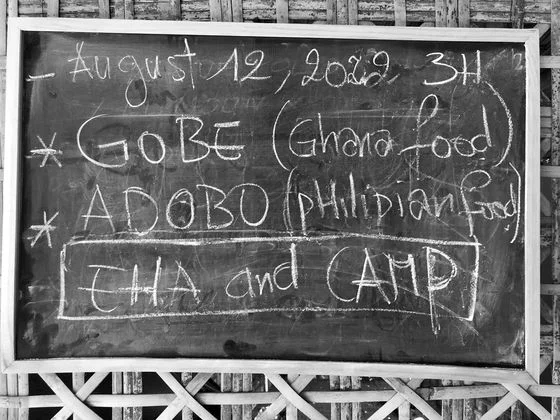 - August 12, 2022 3H
* GOBE (Ghana food)
* ADOBO (pHilipian food)
EHA and CAMP